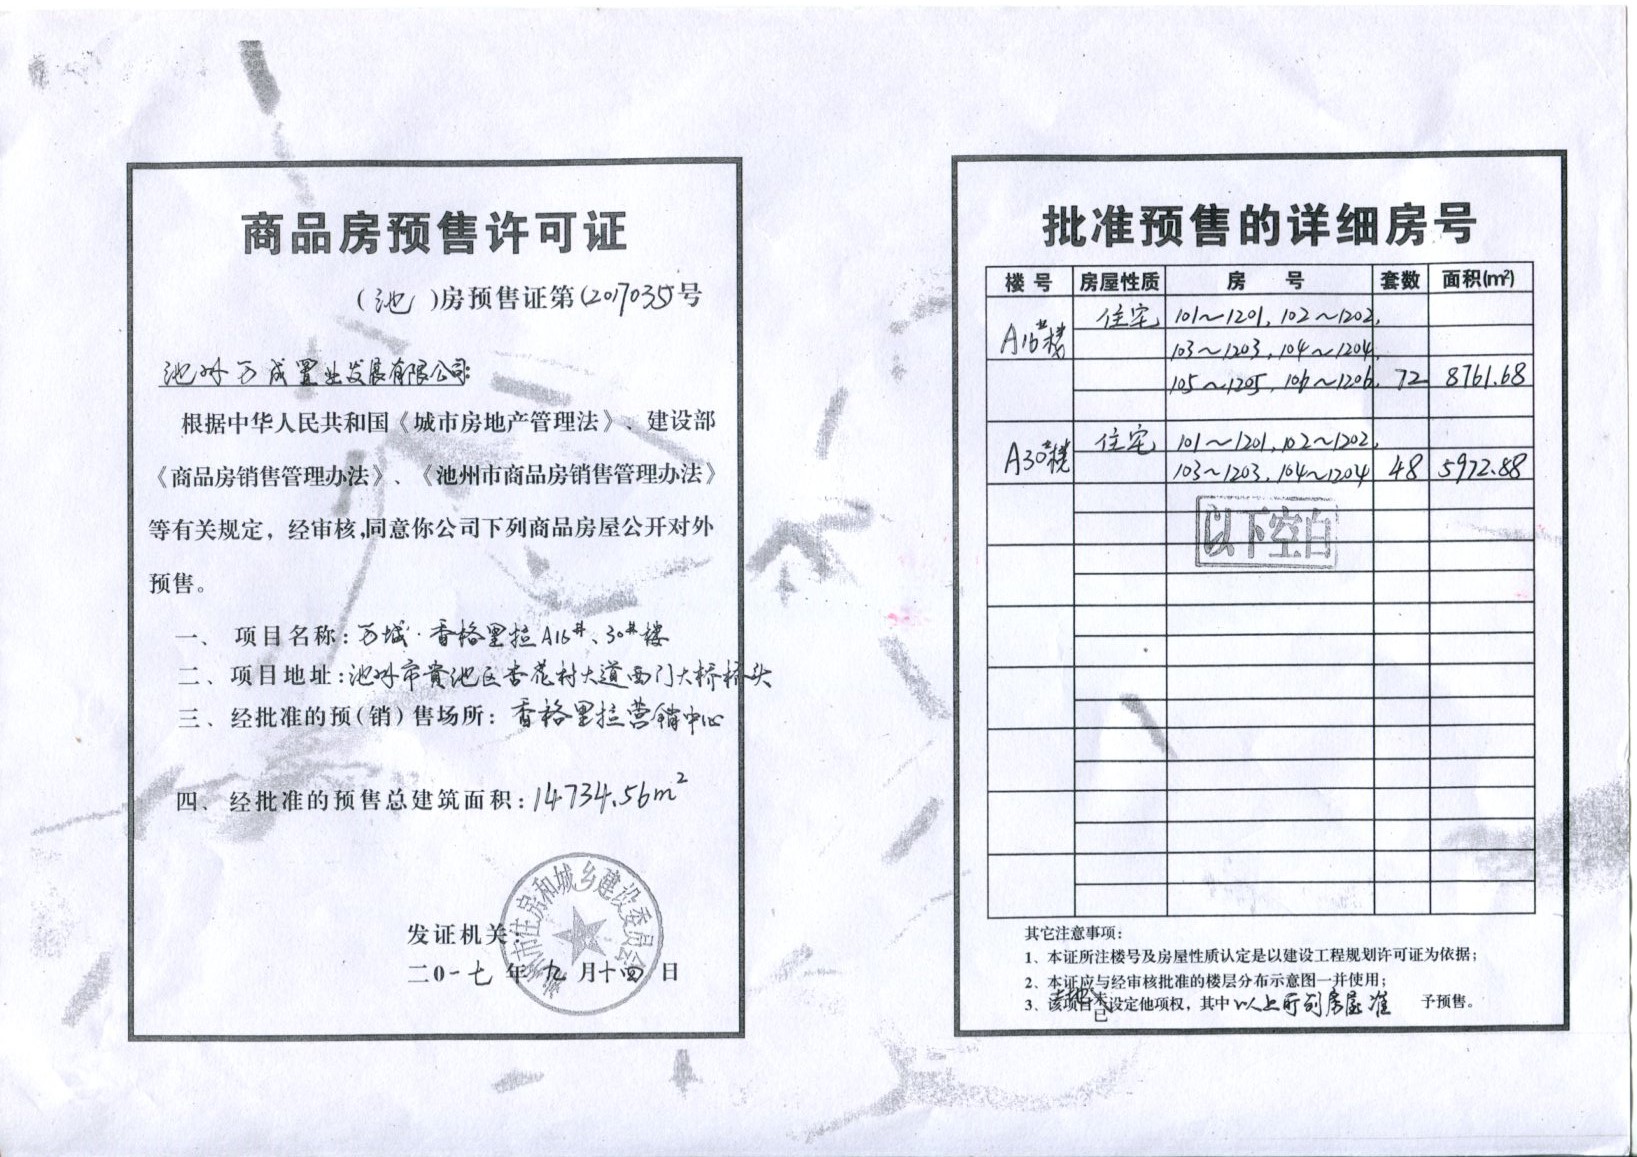 商品房预售许可证
(池)房预售证第(2017035)号
池州万成置业发展有限公司:
根据中华人民共和国《城市房地产管理法》、建设部
《商品房销售管理办法》、《池州市商品房销售管理办法》
等有关规定，经审核,同意你公司下列商品房屋公开对外
预售。
一、项目名称:万城·香格里拉A16#、30#楼
二、项目地址:池州市贵池区杏花村大道西门大桥桥头
三、经批准的预(销)售场所:香格里拉营销中心
四、经批准的预售总建筑面积:14734.56m²
发证机关:
池州市住房和城乡建设委员会
二0一七年九月十四日
批准预售的详细房号
楼号 房屋性质 房号 套数 面积(m²)
A16#楼 住宅 101～1201, 102～1202,
103～1203, 104～1204,
105～1205, 106～1206, 72 8761.68
A30#楼 住宅 101～1201, 102～1202,
103～1203, 104～1204 48 5972.88
以下空白
其它注意事项:
1、本证所注楼号及房屋性质认定是以建设工程规划许可证为依据;
2、本证应与经审核批准的楼层分布示意图一并使用;
3、该项目未已设定他项权，其中以上所列房屋准予预售。